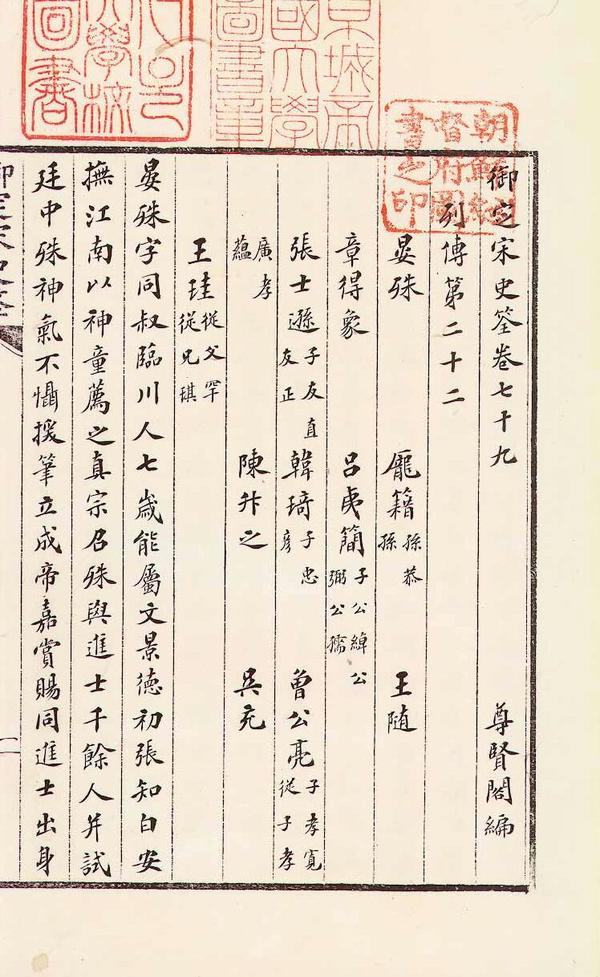 御定宋史筌卷七十九 尊賢閣編
列傳第二十二
晏殊 龐籍孫恭孫 王随
章得象 呂夷簡子公綽公弼公孺
張士遜子友直友正 韓琦子忠彥 曾公亮子孝寬從子孝
廣孝蘊 陳升之 吳充
王珪從父罕從兄琪
晏殊字同叔臨川人七歲能屬文景德初張知白安
撫江南以神童薦之真宗召殊與進士千餘人并試
廷中殊神氣不懾援筆立成帝嘉賞賜同進士出身
京城帝國大學圖書章
朝鮮總督府圖書之印
學校圖書